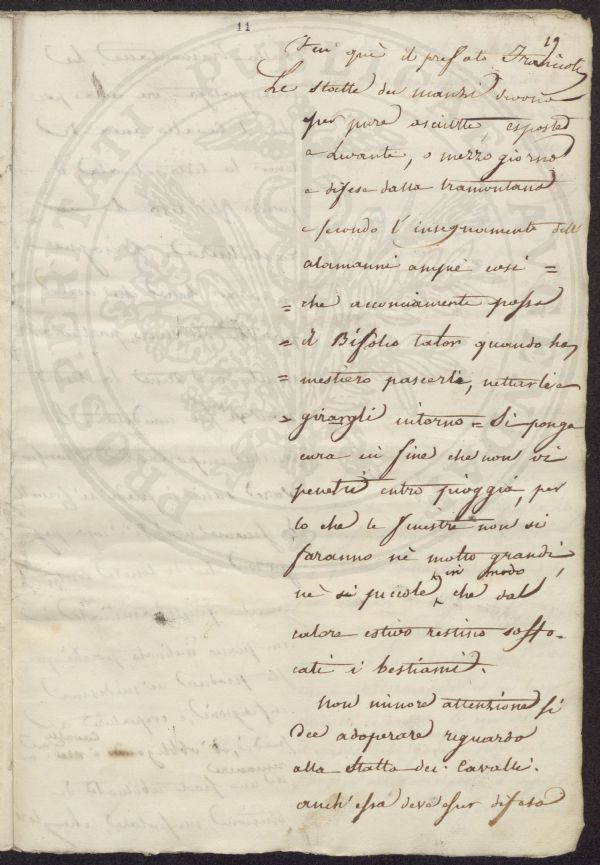 11
19
Fin quì il prefato Trinci
Le stalle dei manzi devono
esser pure asciutte, esposte
a levante, o mezzo giorno
e difese dalla tramontana
e secondo l'insegnamento dell'
alamanni ampie così =
= che acconciamente possa
= il Bifolco talor quando ha
= mestiero pascerli, nettarli e
= girargli intorno = Si ponga
cura in fine che non vi
penetri entro pioggia, per
lo che le finestre non si
faranno nè molto grandi,
in modo
nè sì piccole, che dal
calore estivo restino soffo-
cati i bestiami.
Non minore attenzione si
dee adoperare riguardo
alla stalla dei Cavalli.
anch'essa deve esser difesa
PROSPERITATI PUBLICAE